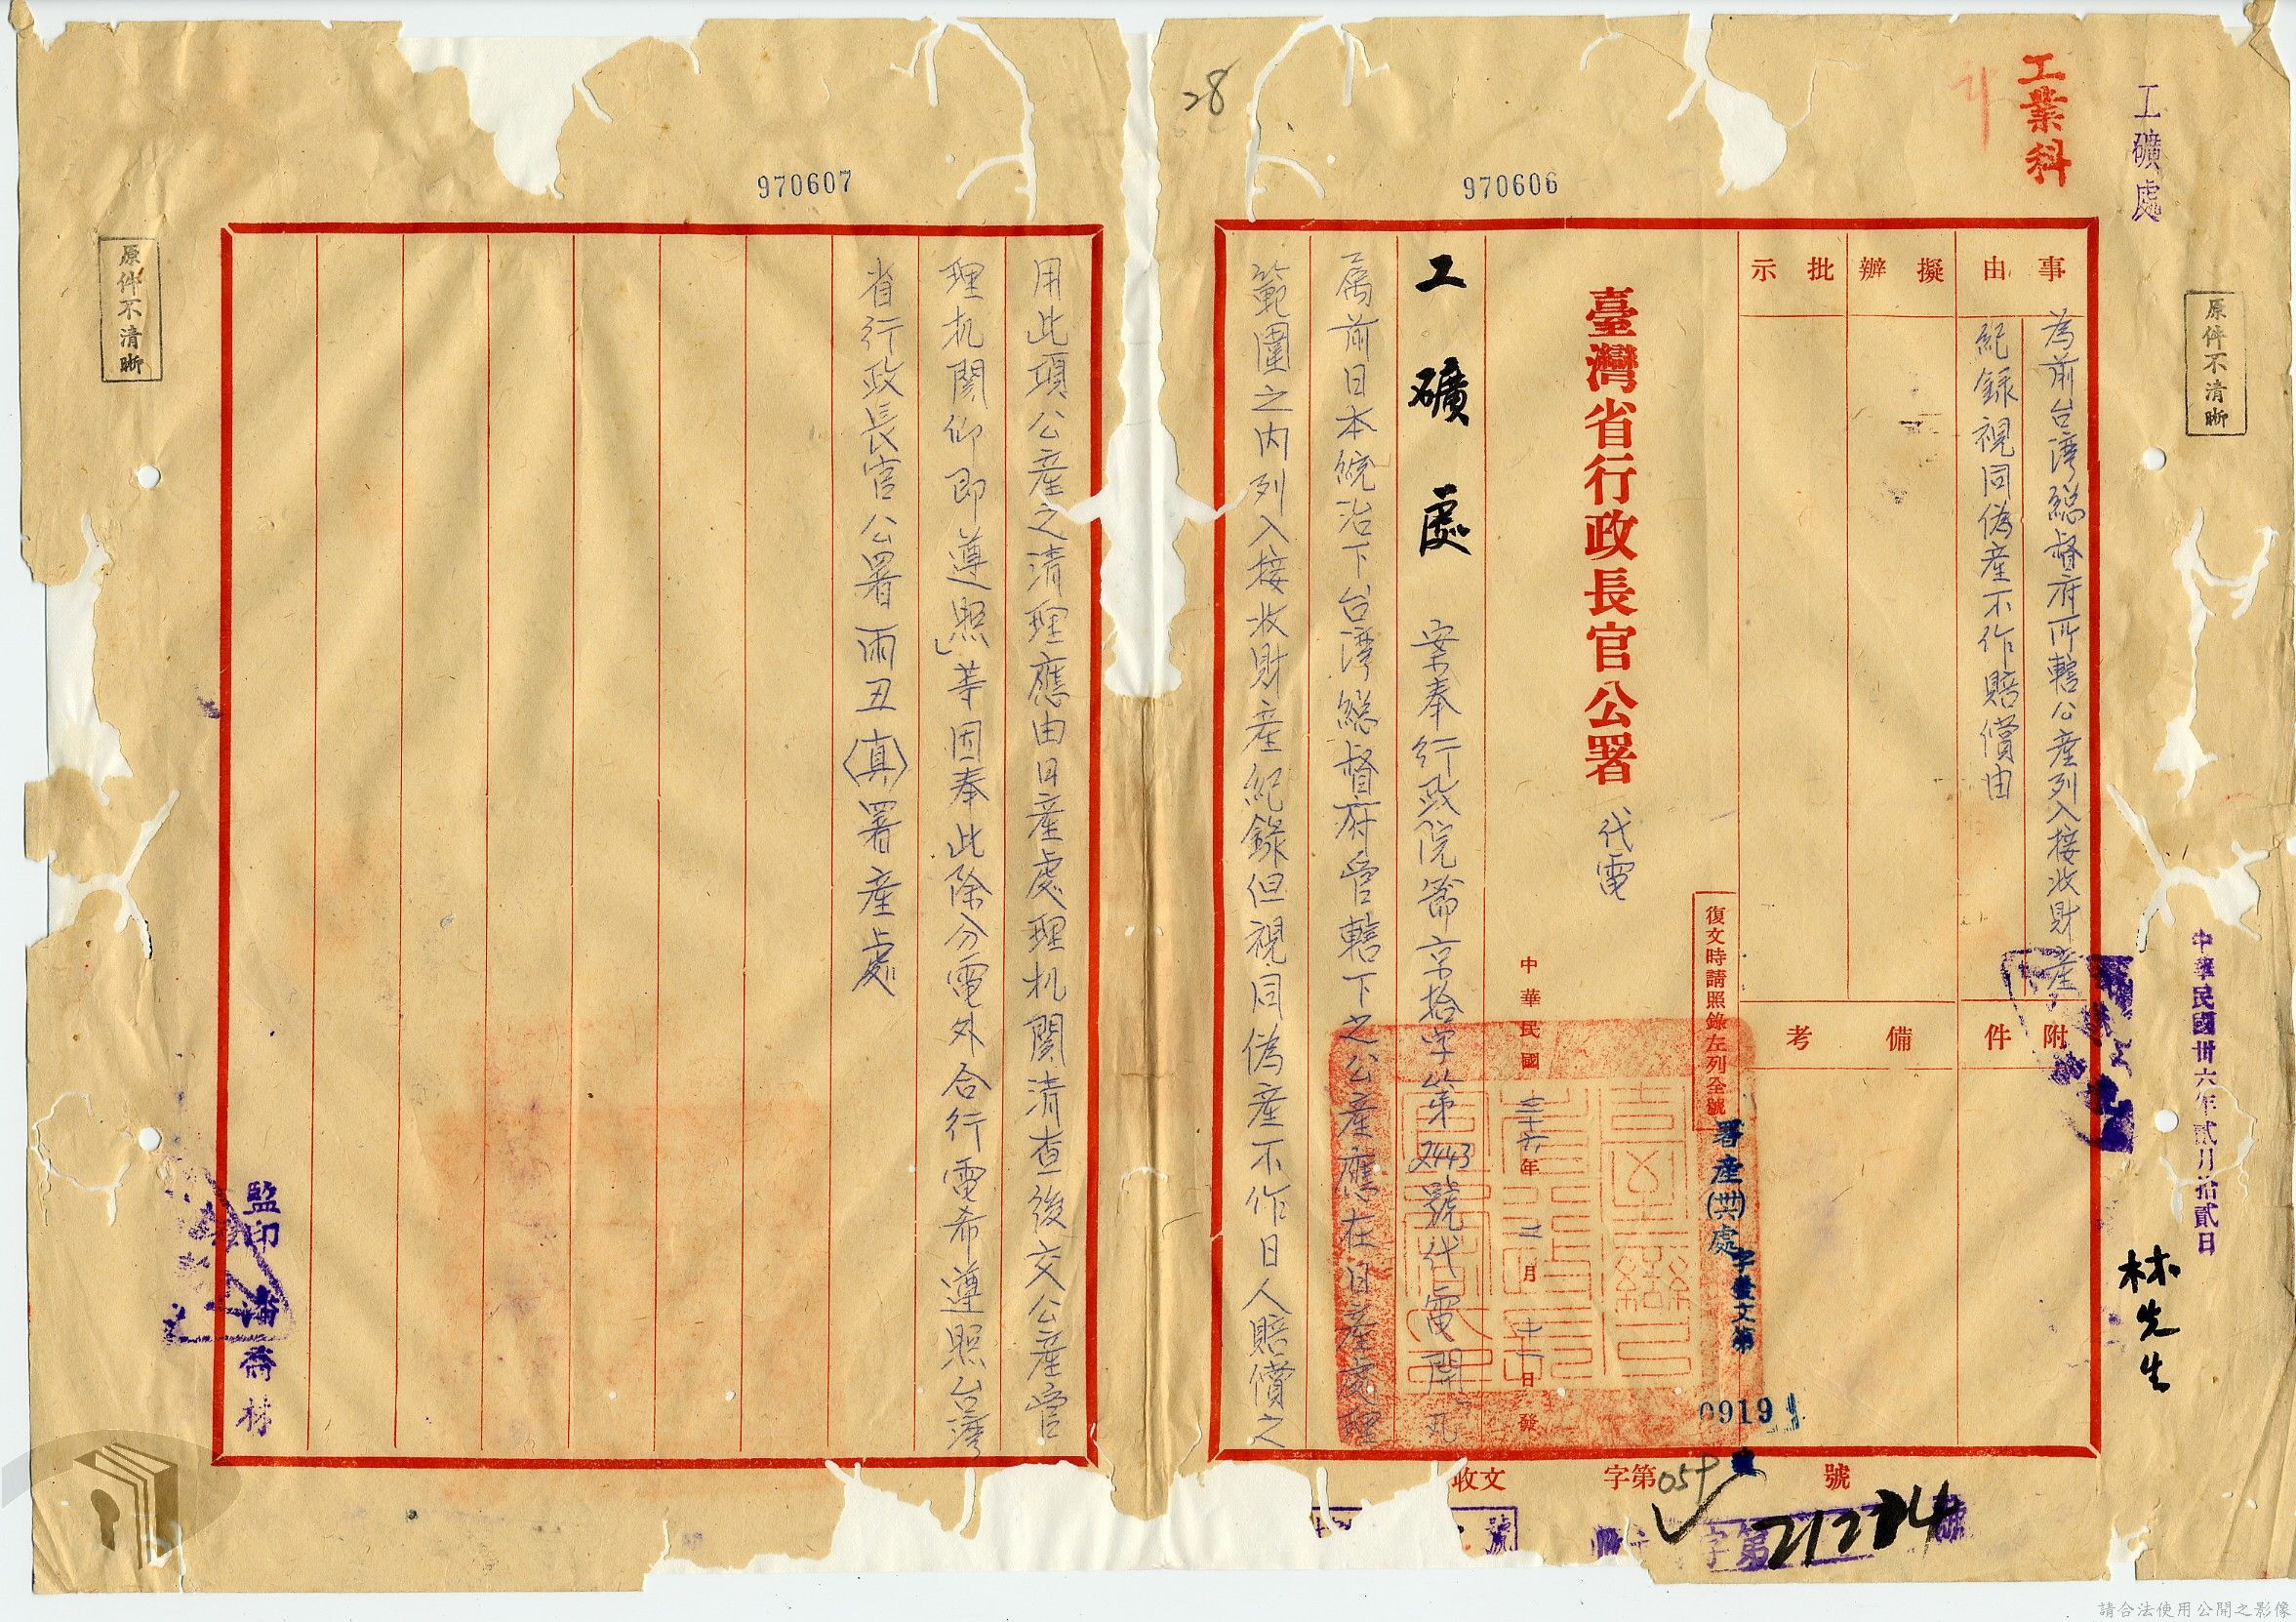 工礦處
工業科
28
970606
970607
原件不清晰
原件不清晰
中華民國卅六年貳月拾貳日
林先生
事由
為前台湾総督府所轄公產列入接收財產
紀録視同偽產不作賠償由
擬辦
批示
附件
備考
復文時請照錄左列全號
署產(卅六)處字發文第
0919
號
臺灣省行政長官公署
代電
中華民國三十六年二月十一日發
工礦處 案奉行政院
京拾字第2443號代電開「凡
属前日本統治下台湾総督府管轄下之公產應在日產處理
範圍之内列入接收財產紀錄但視同偽產不作日人賠償之
用此項公產之清理應由日產處理机関清查後交公產管
理机関仰即遵照」等因奉此除分電外合行電希遵照台灣
省行政長官公署雨丑(真)署產處
監印
收文 字第 號
21224
請合法使用公開之影像